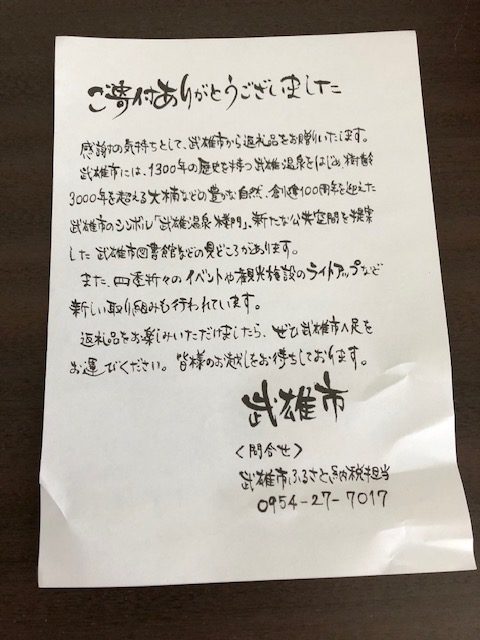 ご寄付ありがとうございました
感謝の気持ちとして、武雄市から返礼品をお贈りいたします。
武雄市には、1300年の歴史を持つ武雄温泉をはじめ、樹齢
3000年を超える大楠などの豊かな自然、創建100周年を迎えた
武雄市のシンボル「武雄温泉楼門」、新たな公共空間を提案
した武雄市図書館などの見どころがあります。
また、四季折々のイベントや観光施設のライトアップなど
新しい取り組みも行われています。
返礼品をお楽しみいただけましたら、ぜひ武雄市へ足を
お運びください。皆様のお越しをお待ちしております。
武雄市
<問合せ>
武雄市ふるさと納税担当
0954-27-7017